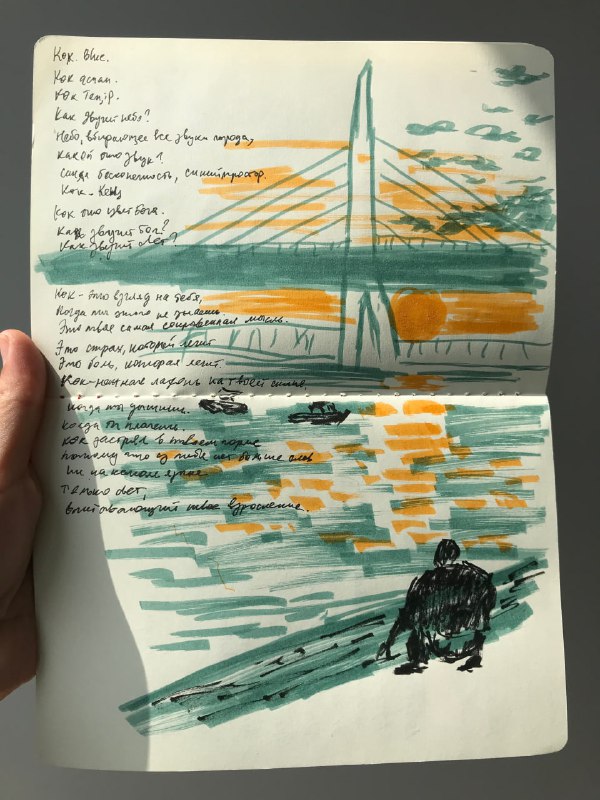 Кок. Blue.
Кок аспан.
Кок Теңір.
Как звучит небо?
Небо, вбирающее все звуки города,
какой это звук?
синяя бесконечность, синий простор.
Кок - Кең
Кок это цвет Бога.
Как звучит Бог?
Как звучит Лет?
Кок - это взгляд на тебя,
Когда ты этого не знаешь
Это твоя самая сокровенная мысль.
Это страх, который лечит
Это боль, которая лечит.
Кок - нежная ладонь на твоей спине
когда ты дышишь.
когда ты плачешь.
кок застрял в твоем горле
потому что у тебя нет больше слов
ни на каком языке
только свет,